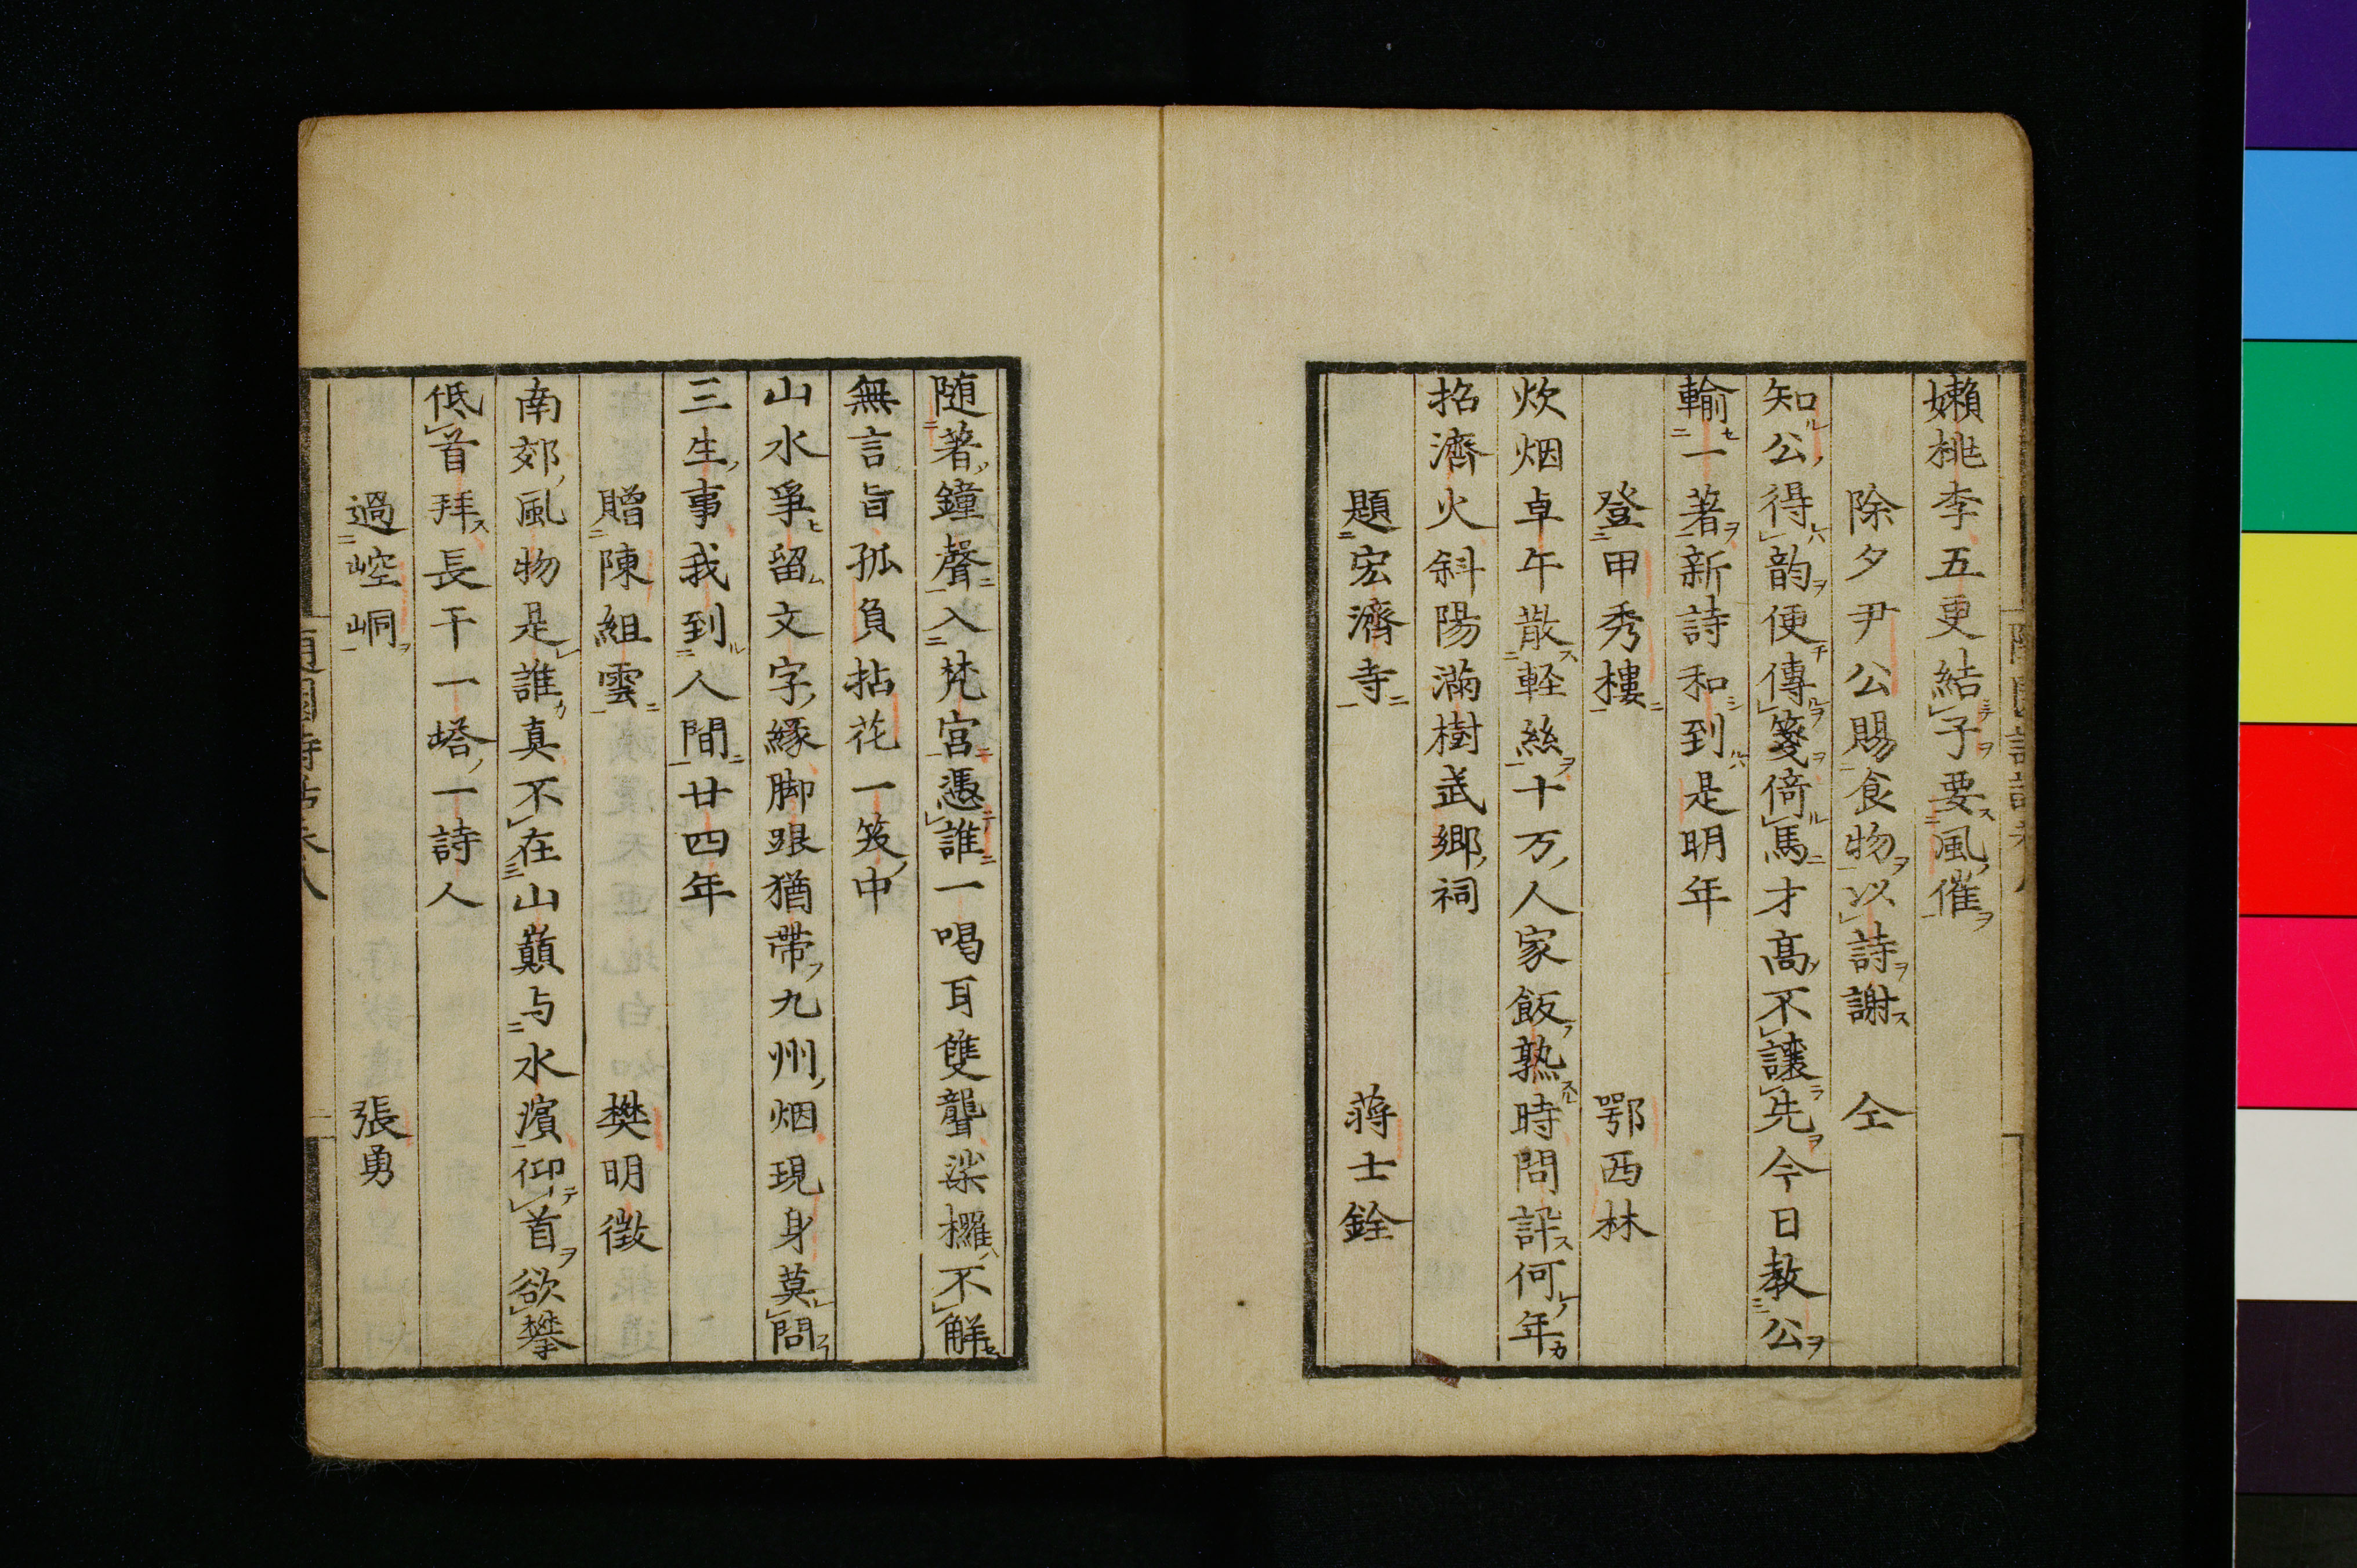 嬾桃李五更結子要風催
除夕尹公賜食物以詩謝　仝
知公得韵便傳箋倚馬才高不讓先今日教公
輸一著新詩和到是明年
登甲秀樓　鄂西林
炊烟卓午散軽絲十万人家飯熟時問訊何年
招濟火斜陽滿樹武鄉祠
題宏濟寺　蒋士銓
随著鐘聲入梵宮憑誰一喝耳雙聾柒欏不解
無言旨孤負拈花一笈中
山水爭留文字緣脚跟猶帶九州烟現身莫問
三生事我到人間廿四年
贈陳組雲　樊明徵
南郊風物是誰真不在山巔与水濱仰首欲攀
低首拜長干一塔一詩人
過崆峒　張勇